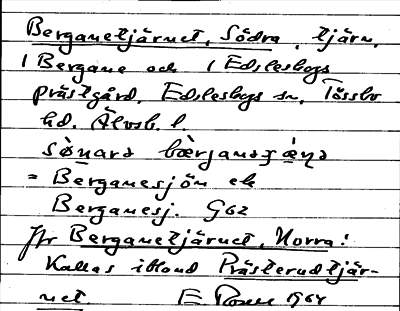 Berganetjärnet, Södra, tjärn,
i Bergane och i Edslesbogs
prästgård, Edslesbogs sn, Tössbo
hd. Älvsb. l.
= Berganesjön ek
Berganesj. G62
Jfr Berganetjärnet, Norra!
Kallas ibland Prästerudtjär-
net. E 1964